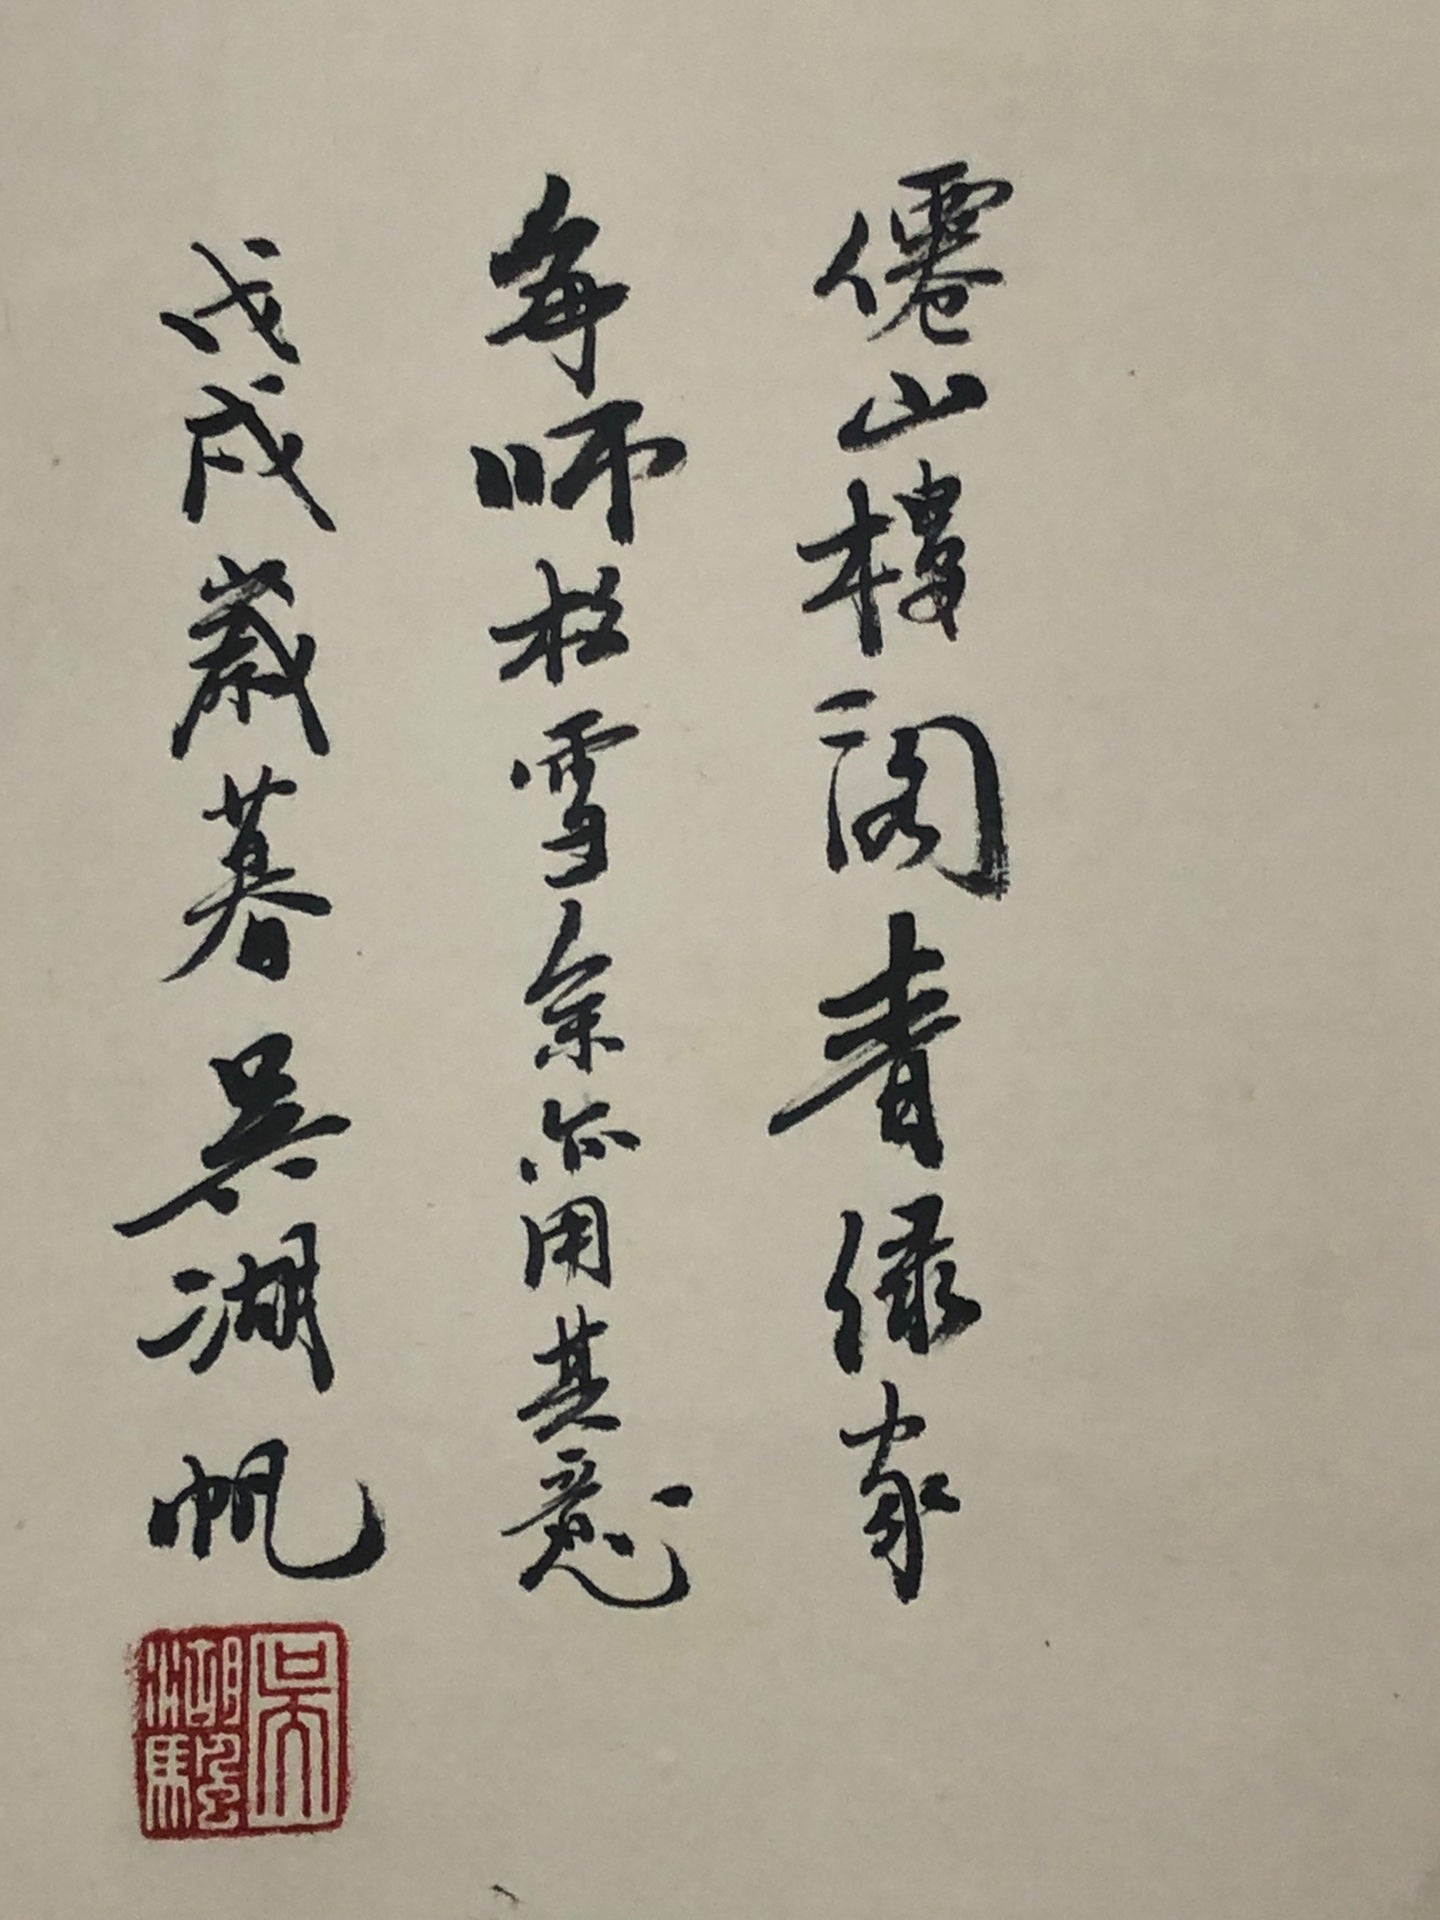 僊山樓閣青緑家
每師松雪余亦用其意
戊戌歲暮吳湖帆
吳湖颿